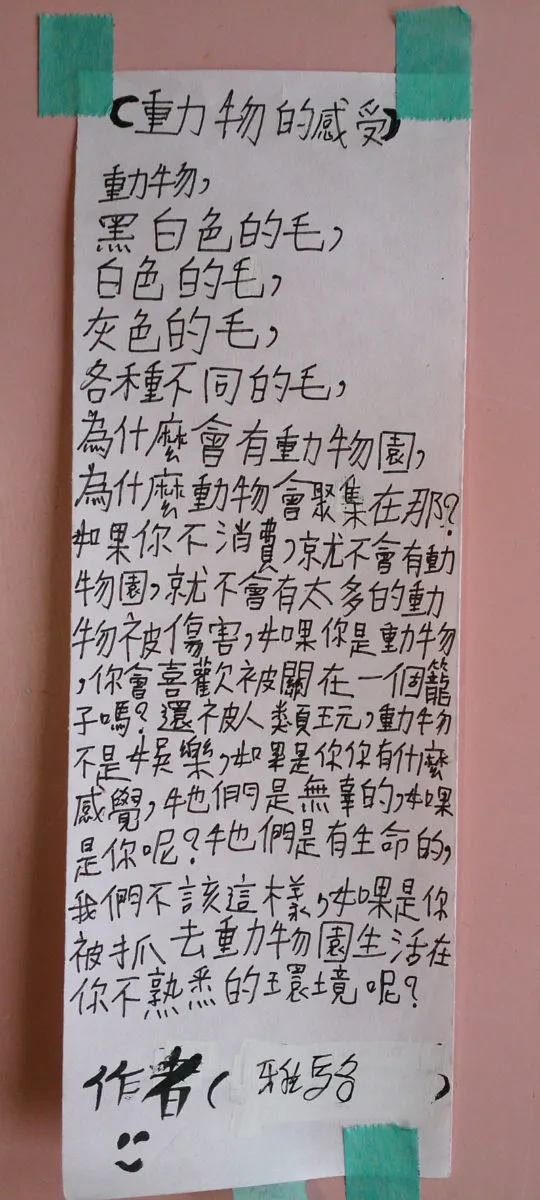 (動力物的感受)
動物，
黑白色的毛，
白色的毛，
灰色的毛，
各種不同的毛，
為什麼會有動物園，
為什麼動物會聚集在那？
如果你不消費，就不會有動
物園，就不會有太多的動
物被傷害，如果你是動物
，你會喜歡被關在一個籠
子嗎？還被人類玩，動物
不是娛樂，如果是你你有什麼
感覺，牠們是無辜的，如果
是你呢？牠們是有生命的，
我們不該這樣，如果是你
被抓去動物園生活在
你不熟悉的環境呢？
作者(雅駱)